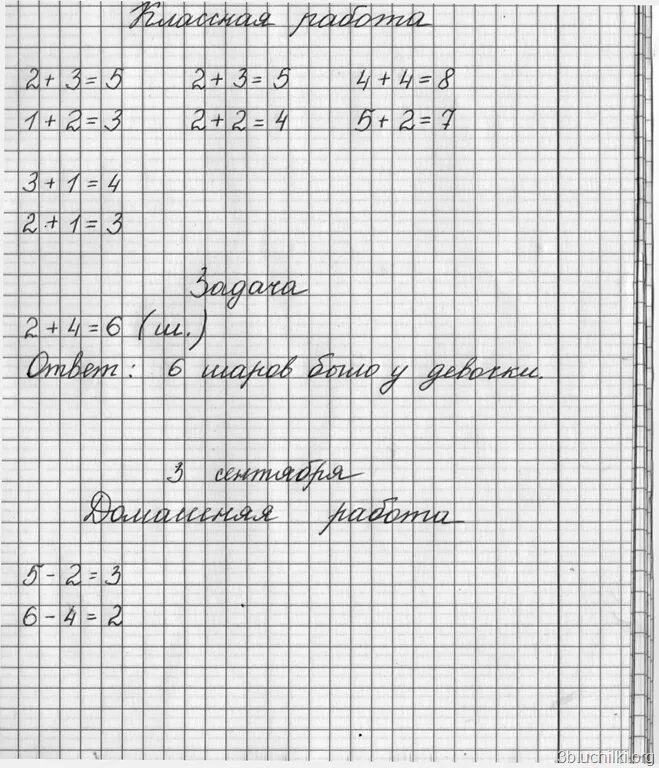 Классная работа
2 + 3 = 5 2 + 3 = 5 4 + 4 = 8
1 + 2 = 3 2 + 2 = 4 5 + 2 = 7
3 + 1 = 4
2 + 1 = 3
Задача
2 + 4 = 6 (ш.)
Ответ: 6 шаров было у девочки.
3 сентября
Домашняя работа
5 - 2 = 3
6 - 4 = 2
3b.uchilki.org